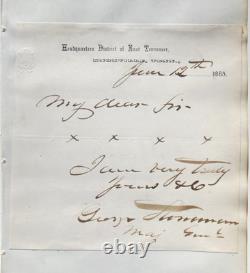 Headquarters District of East Tennessee,
June 12th 1865.
My dear Sir—
x x x x
I am very truly
Yours &c
George Stoneman
Maj Genl
ebay